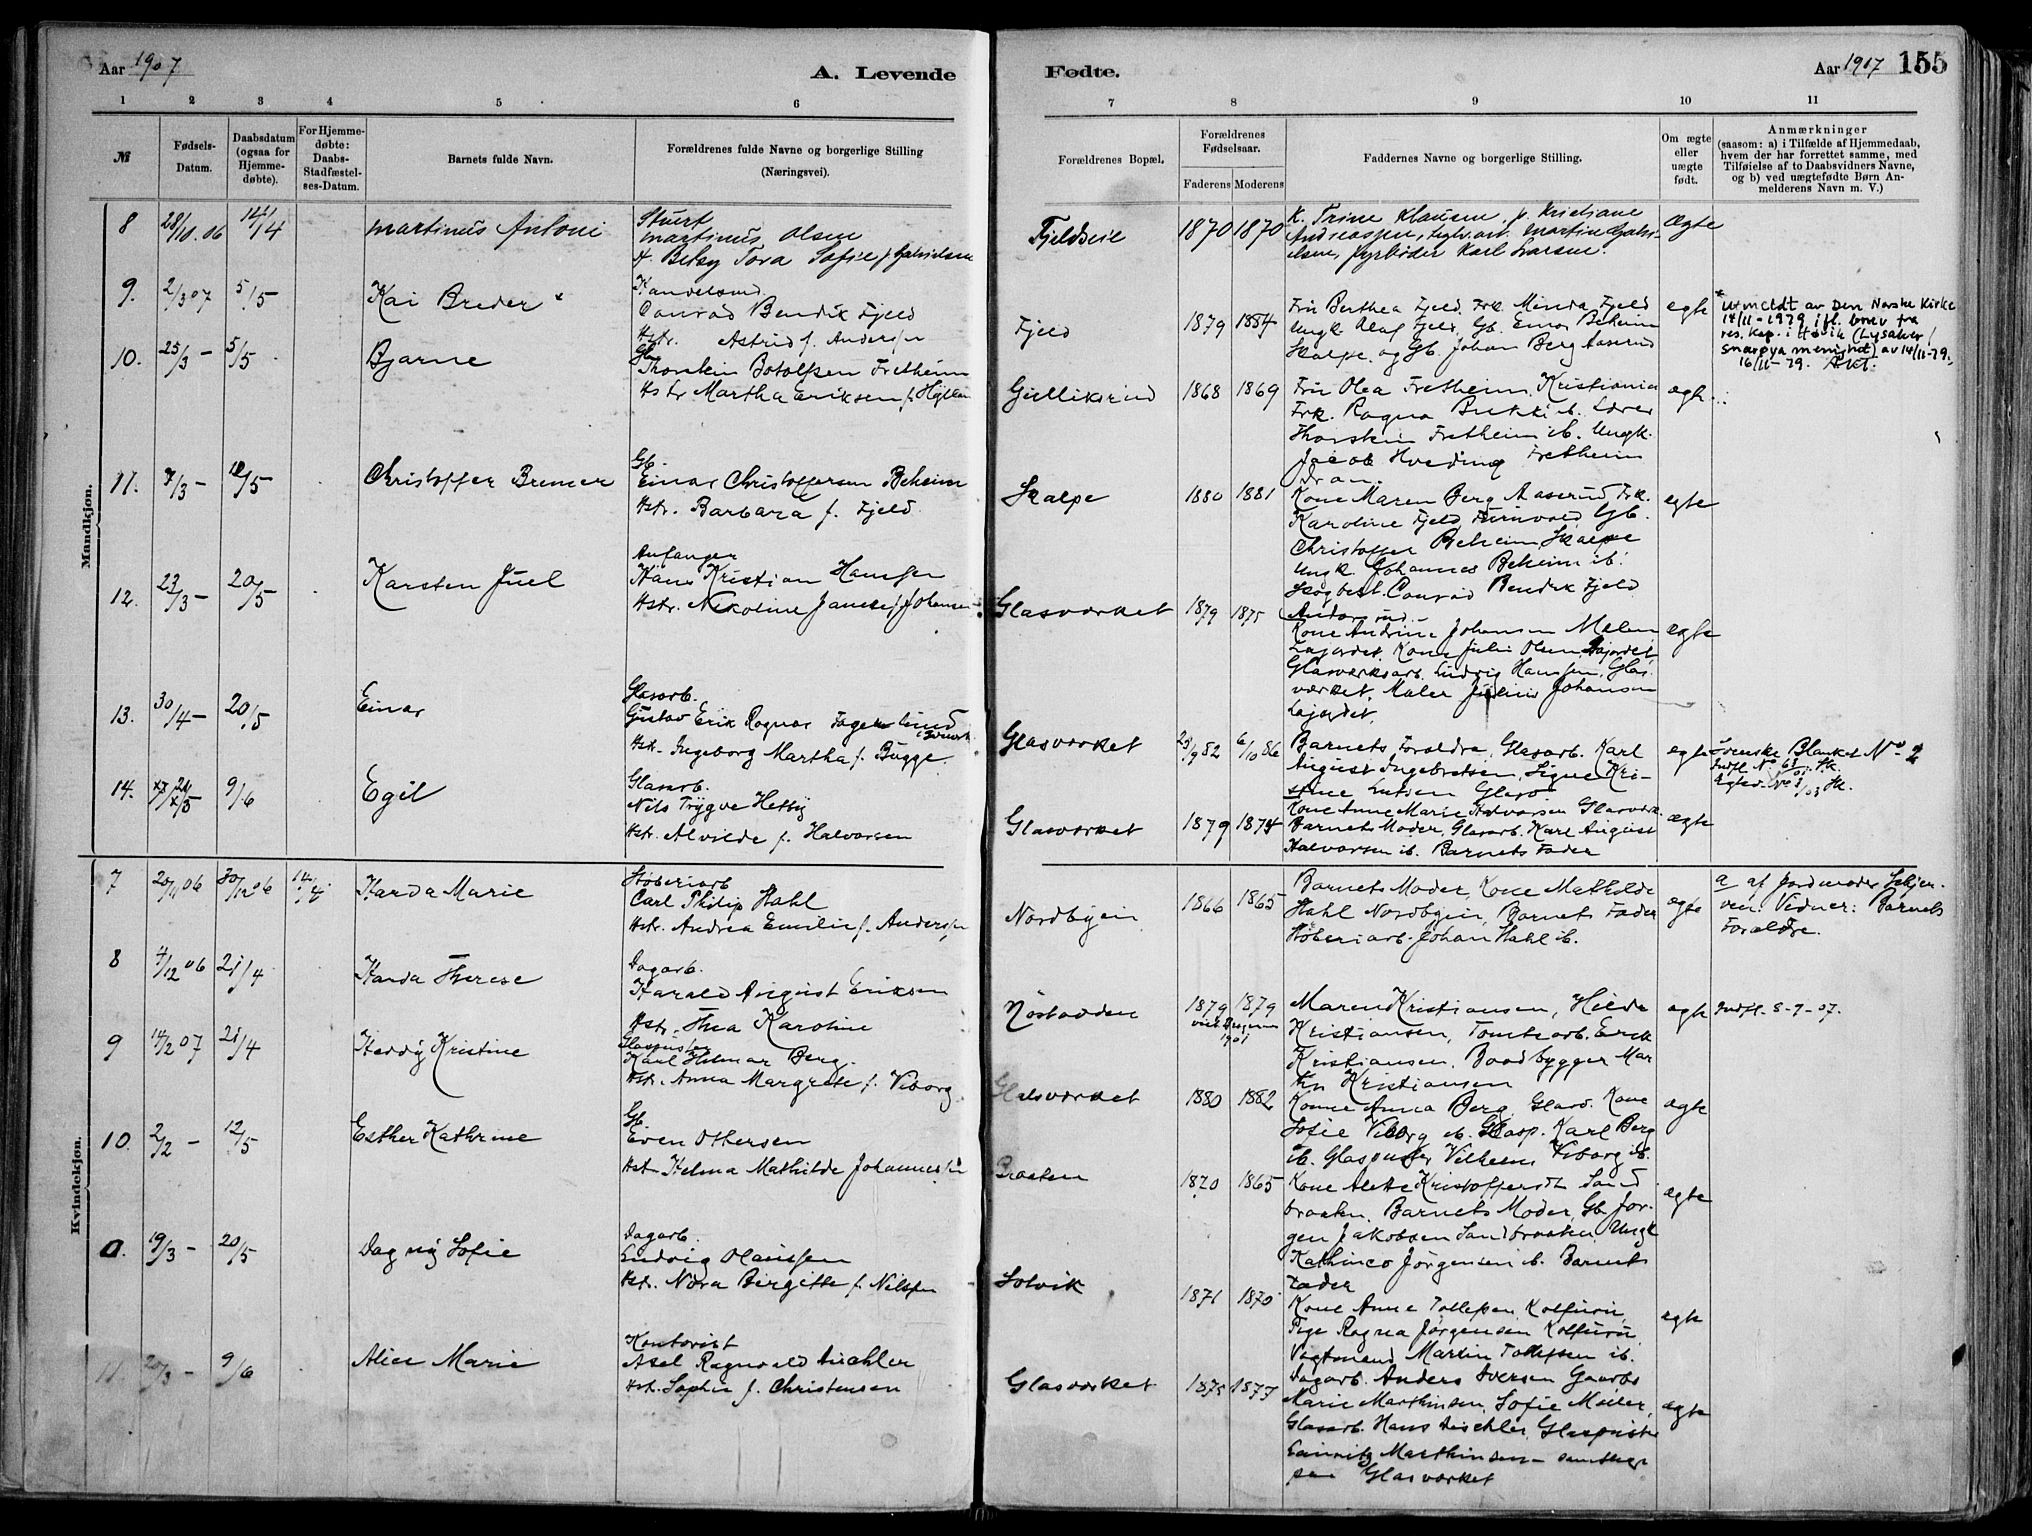 Aar 1907
A. Levende
1 2 3 4 5 6
№
Fødsels-
Datum.
Daabsdatum
(ogsaa for
Hjemme-
døbte).
For Hjemme-
døbte:
Daabs-
Stadfæstel-
ses-Datum.
Barnets fulde Navn.
Forældrenes fulde Navne og borgerlige Stilling
(Næringsvei).
Mandkjøn.
8 28/10.06 14/4 Martinus Antoni
Martinus Olsen
Betsy Tora Sofie f. Gabrielsen
9. 2/3 07 5/5 Kai Breder *
Conrad Bendix Fjeld
Hstr. Astrid f. Andersen
10. 25/3 – 5/5 Bjarne
Gb.
Thorstein Botolfsen Fretheim
Hstr Martha Eriksen f.
11. 7/3 – 12/5 Christoffer Bremer
Gb.
Einar Christoffersen Beheim
Hstr. Barbara f. Fjeld.
12. 23/3 – 20/5 Karsten Juel
Anfanger
Hans Kristian Hansen
Hstr. Nikoline Janese f. Johansen
13. 30/4 – 20/5 Einar
Glasarb.
Gustav Erik Ragnar Fagerlund
Hstr. Ingeborg Martha f. Bugge.
14. 9/6 Egil
Glasarb.
Nils Trygve Hetty
Hstr. Alvilde f. Halvorsen
Kvindekjøn.
7 20/11 06 30/12 06 14/4 Harda Marie
Støberiarb
Carl Philip Hahl
Hstr. Andrea Emilie f. Andersen
8 4/12 06 21/4 Harda Therese
Dagarb.
Harald August Eriksen
Hstr. Thea Karoline
9 14/2 07 21/4 Heddy Kristine
Glaspuster
Karl Hilmar Berg.
Hstr. Anna Margrete f. Viborg
10. 2/2 – 12/5 Esther Kathrine
Gb.
Even Ottersen
Hstr Helma Mathilde Johannesen
19/3 – 20/5 Dagny Sofie
Dagarb.
Ludvig Olaussen
Hstr. Nora Birgitte f. Nilssen
11. 20/3 – 9/6 Alice Marie
Kontorist
Axel Ragnvald Aischler
Hstr. Sophie f. Christensen
Fødte.
Aar 1907 155
7 8 9 10 11
Forældrenes Bopæl.
Forældrenes
Fødselsaar.
Faderens Moderens
Faddernes Navne og borgerlige Stilling.
Om ægte
eller
uægte
født.
Anmærkninger
(saasom: a) i Tilfælde af Hjemmedaab,
hvem der har forrettet samme, med
Tilføielse af to Daabsvidners Navne,
og b) ved uægtefødte Børn An-
melderens Navn m. V.)
Fjeldseie 1870 1870
K. Trine Klausen, p. Kristiane
Andreassen, teglv.arb. Martin Gabri-
elsen, fyrbøder Karl Larsen.
Ægte
Fjeld 1879 1884
Fru Berthea Fjeld, Frk. Minda Fjeld
Ungk. Olaf Fjeld, Gb. Einar Beheim
Skalpe, og Gb. Johan Berg Aaserud
egte
* Utmeldt av Den Norske Kirke
14/11-1979 ifl. brev fra
res. kap. i Høvik (Lysaker/
Snarøya menighet) av 14/11-79.
16/11-79.
Gulliksrud 1868 1869
Fru Olea Fretheim, Kristiania
Frk. Ragna Bukki ib. Lærer
Thorstein Fretheim ib. Ungk.
Jacob Hveding Fretheim
egte
Skalpe 1880 1881
Kone Maren Berg Aaserud, Frk.
Karoline Fjeld, Furuvold, Gb.
Christoffer Beheim Skalpe
Ungk. Johannes Beheim ib.
Skogbest. Conrad Bendix Fjeld
egte
Glasværket 1879 1875
Kone Andrine Johansen Melen
Lajordet, Kone Julie Olsen, Lajordet,
Glasværksarb. Ludvig Hansen, Glas-
værket. Maler Julius Johansen
Lajordet.
egte
Glasværket 23/9 82 6/10 86
Barnets Forældre, Glasarb. Karl
August Ingebretsen, Signe Kri-
stine
egte
Svenske Blanket No 2
Glasværket 1879 1874
Kone Anne Marie Halvorsen Glasværk.
Barnets Moder, Glasarb. Karl August
Halvorsen ib. Barnets Fader
ægte
Nordbyen 1866 1865
Barnets Moder, Kone Mathilde
Hahl Nordbyen, Barnets Fader
Støberiarb. Johan Hahl ib.
egte
a af Jordmoder Schjer-
ven. Vidner: Barnets
Forældre.
Nøstodden 1879 1879
Maren Kristiansen, Hilda
Kristiansen, Tomtearb. Erik
Kristiansen, Baadbygger Mar-
tin Kristiansen
egte
Indfl. 8-7-07.
Glasværket 1880 1882
Kone Anna Berg, Glasv. Kone
Sofie Viborg ib. Glasp. Karl Berg
ib. Glaspuster Vilhelm Viborg ib.
ægte
Braaten 1870 1865
Kone Alette Kristoffersdt Sand-
braaten, Barnets Moder, Gb. Jør-
gen Jakobsen Sandbraaten, Ungk
Kathinco Jørgensen ib. Barnets
Fader
ægte
Solvik 1871 1870
Kone Anne Tollefsen Kolfuru,
Pige Ragna Jørgensen Kolfuru,
Vogtmand Martin Tollefsen ib.
Dagarb. Anders Iversen
egte
Glasværket 1875 1877
Marie Marthinsen, Sofie Møller,
Glasarb. Hans Aischler, Glaspuster
Lauritz Marthinsen – samtlige
paa Glasværket
ægte